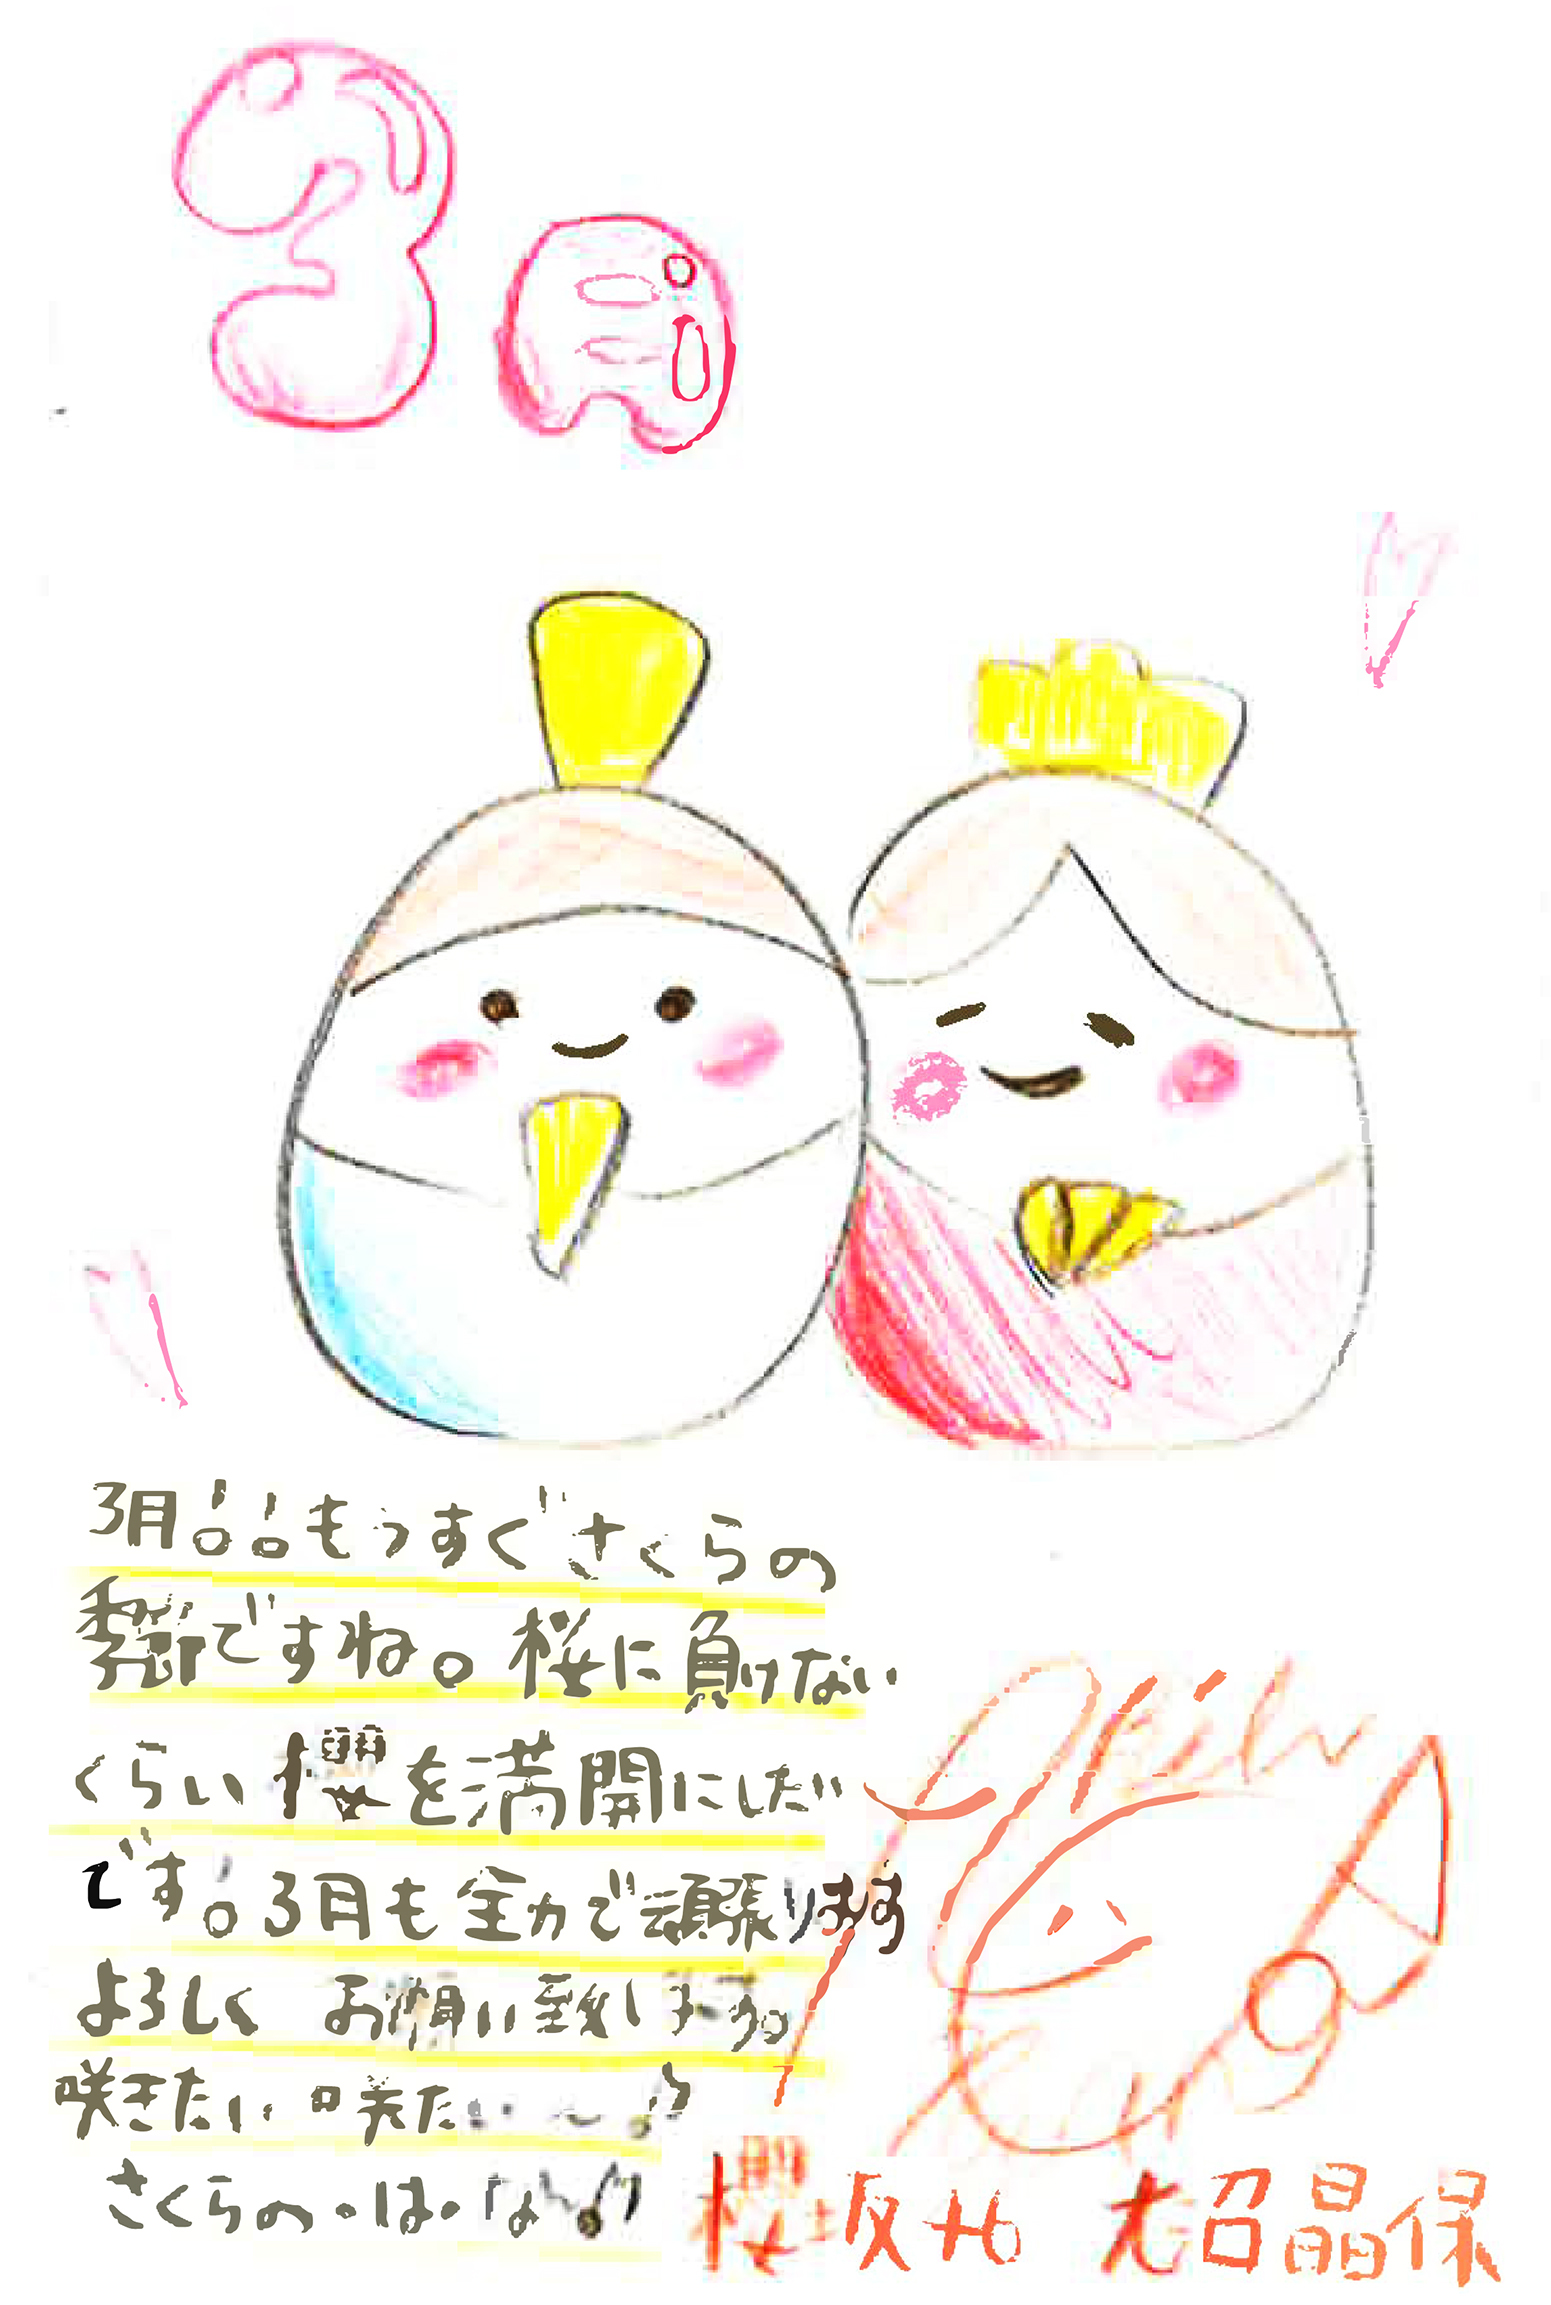 3月!!もうすぐさくらの
季節ですね。桜に負けない
くらい櫻を満開にしたい
です!。3月も全力で頑張ります
よろしくお願い致します。
咲きたい咲きたい〜♪
さくらの・は・な〜♪
櫻坂46 大沼晶保